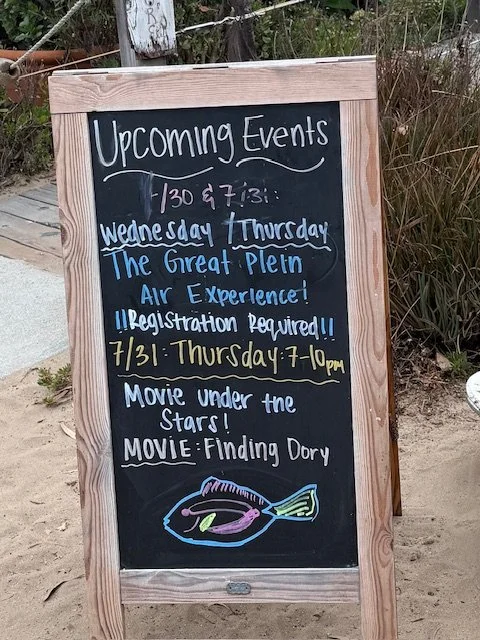 Upcoming Events
7/30 & 7/31:
Wednesday / Thursday
The Great Plein
Air Experience!
!!Registration Required!!
7/31: Thursday: 7-10pm
Movie under the
Stars!
MOVIE: Finding Dory